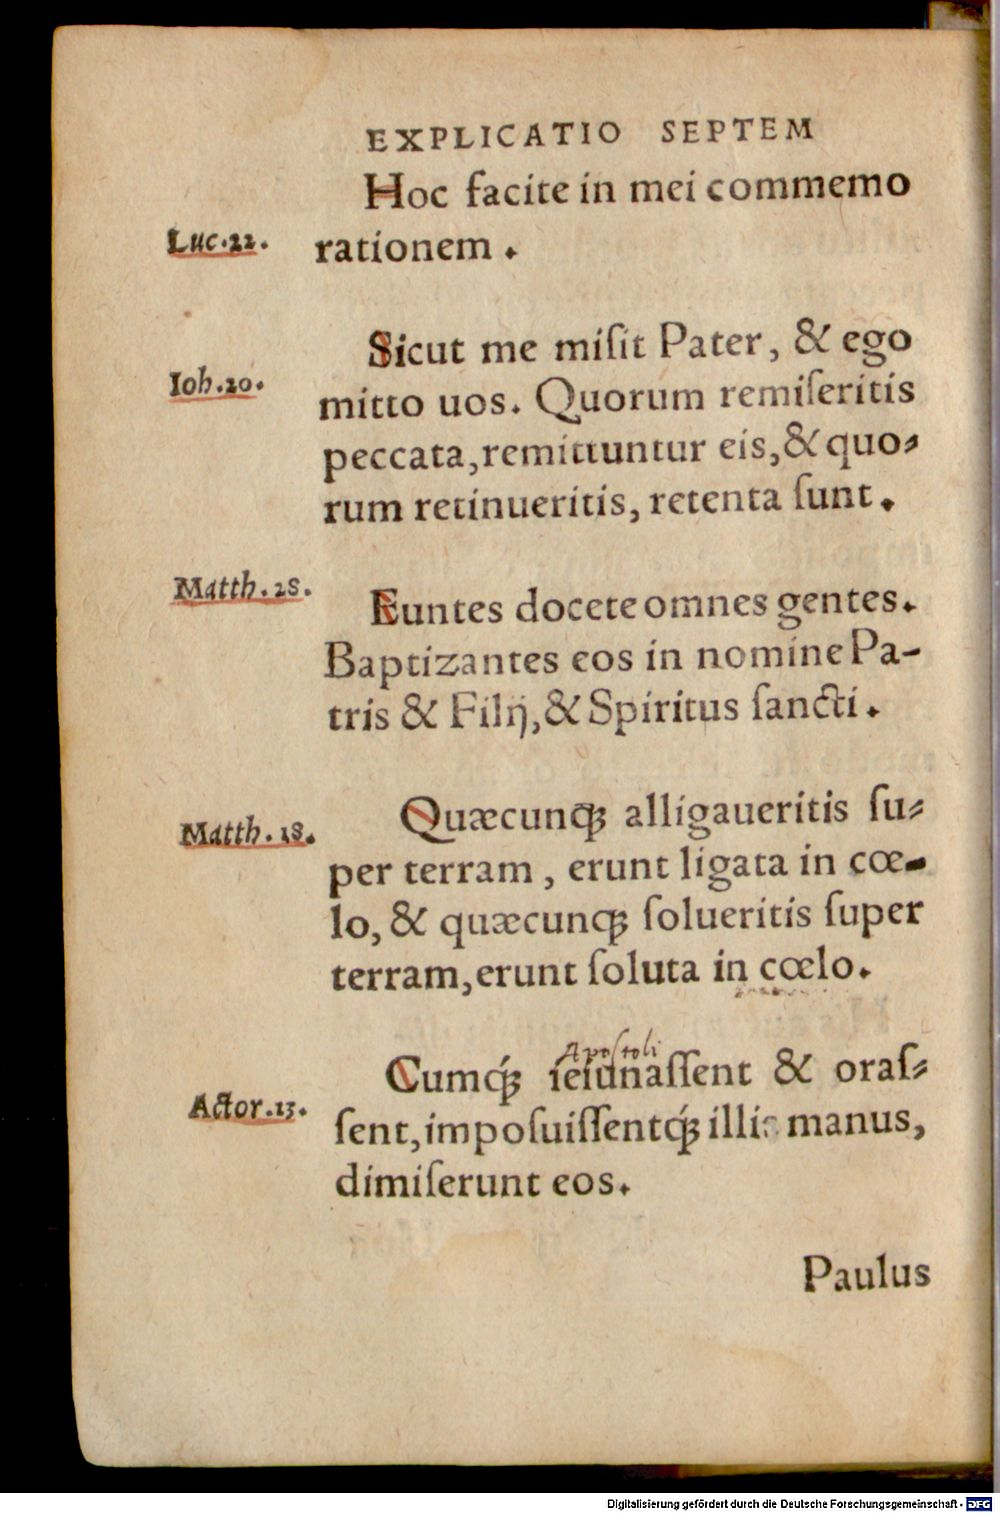 EXPLICATIO SEPTEM
Hoc facite in mei commemo
Luc.22.
rationem.
Sicut me miſit Pater, & ego
Ioh.20.
mitto uos. Quorum remiſeritis
peccata, remittuntur eis, & quo-
rum retinueritis, retenta ſunt.
Matth.28.
Euntes docete omnes gentes.
Baptizantes eos in nomine Pa-
tris & Filij, & Spiritus ſancti.
Matth.18.
Quæcunqꝫ alligaueritis ſu-
per terram, erunt ligata in cœ-
lo, & quæcunqꝫ ſolueritis ſuper
terram, erunt ſoluta in cœlo.
Apoſtoli
Cumq́ꝫ ieiunaſſent & oraſ-
Actor.13.
ſent, impoſuiſſentq́ꝫ illis manus,
dimiſerunt eos.
Paulus
Digitalisierung gefördert durch die Deutsche Forschungsgemeinschaft - DFG